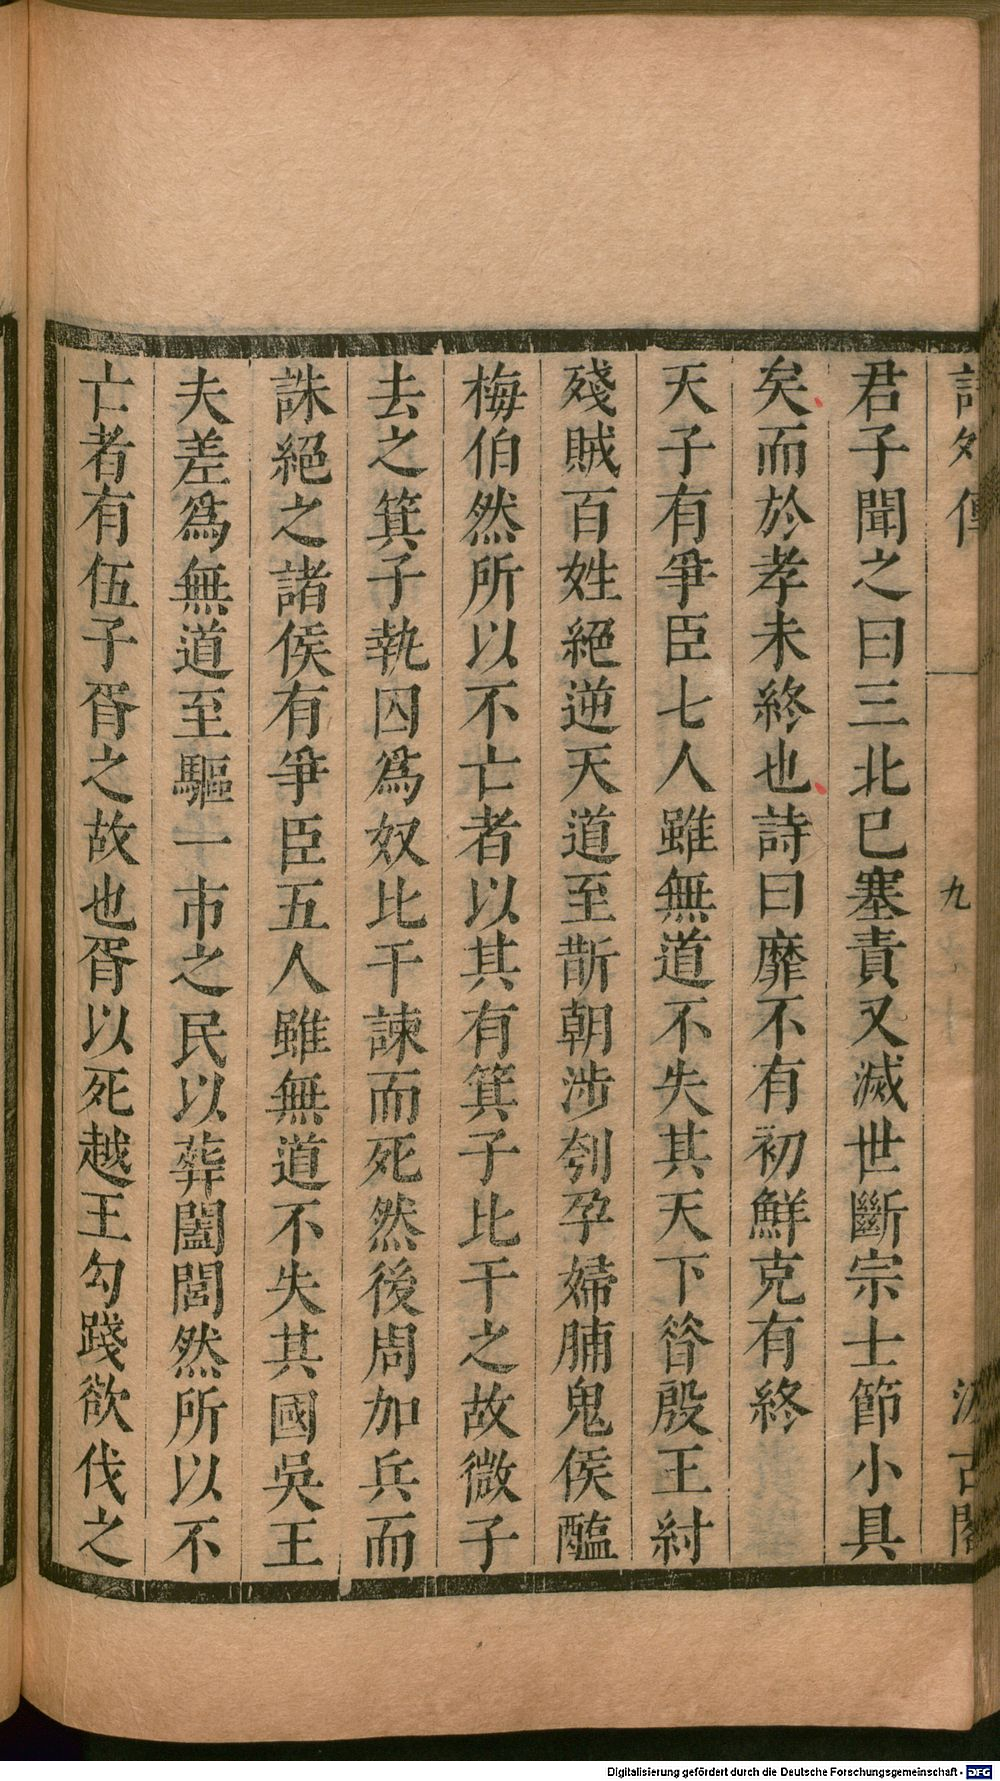 詩外傳 九 汲古閣
君子聞之曰三北已塞責又滅世斷宗士節小具
矣而於孝未終也詩曰靡不有初鮮克有終
天子有爭臣七人雖無道不失其天下昝殷王紂
殘賊百姓絕逆天道至斮朝涉刳孕婦脯鬼侯醢
梅伯然所以不亡者以其有箕子比干之故微子
去之箕子執囚爲奴比干諫而死然後周加兵而
誅絕之諸侯有爭臣五人雖無道不失其國吳王
夫差爲無道至驅一市之民以葬闔閭然所以不
亡者有伍子胥之故也胥以死越王勾踐欲伐之
Digitalisierung gefördert durch die Deutsche Forschungsgemeinschaft - DFG